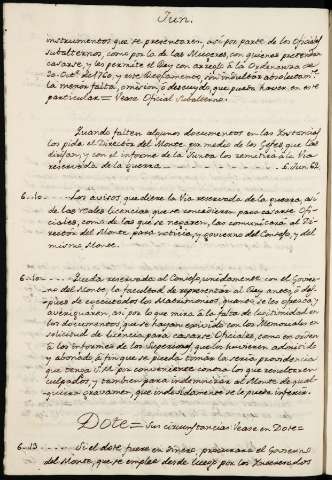 Jun.
instrumentos que se presentaren, así por parte de los Oficiales
subalternos, como por la de las Mugeres, con quienes pretendan
casarse, y les permite el Rey con arreglo à la Ordenanza de
30. Octre. de 1760, y este Reglamento, sin indultar absolutamte.
la menor falta, omision, ó descuydo, que pueda haver en este
particular = Vease Oficial Subalterno.
Quando falten algunos documentos en las Instancias
los pida el Director del Monte por medio de los Gefes, que las
dirijan, y con el informe de la Junta los remitirá à la Via
reservada de la Guerra
6. Los avisos, que diere la Via reservada de la guerra, así
de las reales licencias que se concedieren para casarse Ofi-
ciales, como de las que se negaren, las comunicará al Di-
rector del Monte para noticia, y govierno del Consejo, y del
mismo Monte.
6. Queda reservada al Consejo, unidamente con el Govier-
no del Monte, la facultad de representar al Rey antes, ó des-
pues de executados los Matrimonios, quanto se les ofrezca y
averiguaren, así por lo que mira à la falta de legitimidad en
los documentos, que se hayan con los Memoriales en
solicitud de Licencia para casarse Oficiales, como en orden
à los informes de los Superiores, que los huvieren admitido
y abonado, à fin que se pueda tomar la seria providencia
que tenga S.M. por conveniente contra los que resultaren
culpados, y tambien para indemnizar al Monte de qual-
quiera gravamen, que indevidamente se le pueda inferir.
Dote = Sus circunstancias Vease en Dote =
6. 13 Si el dote fuere en dinero, procurará el Govierno
del Monte, que se emplee desde luego por los Interesados